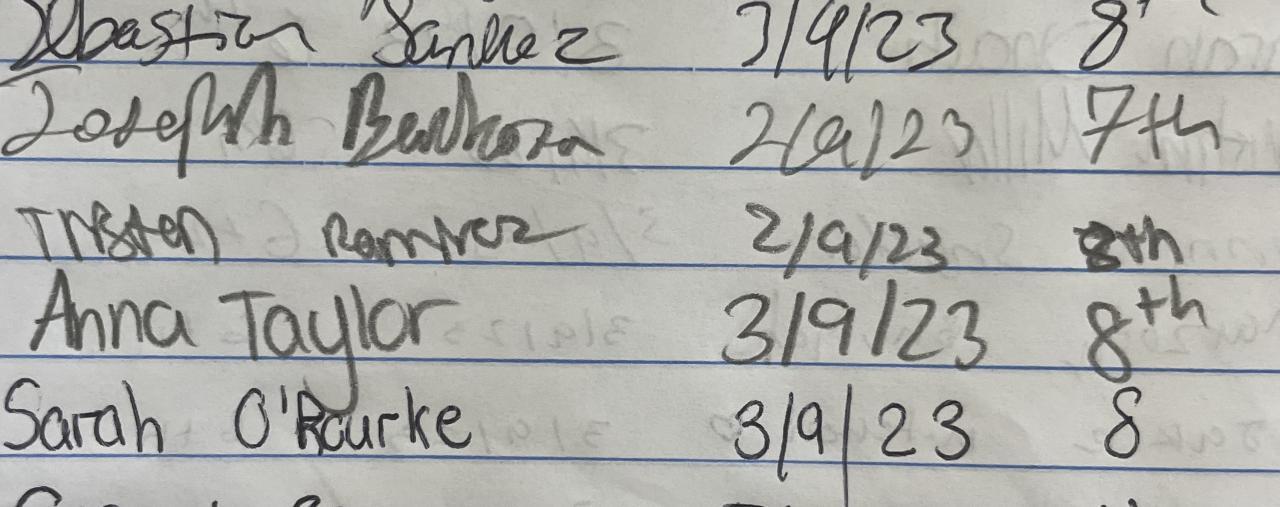 Sebastian Sanchez 3/9/23 8
Joseph 2/9/23 7th
Tristen Ramirez 2/9/23 8th
Anna Taylor 3/9/23 8th
Sarah O'Rourke 3/9/23 8